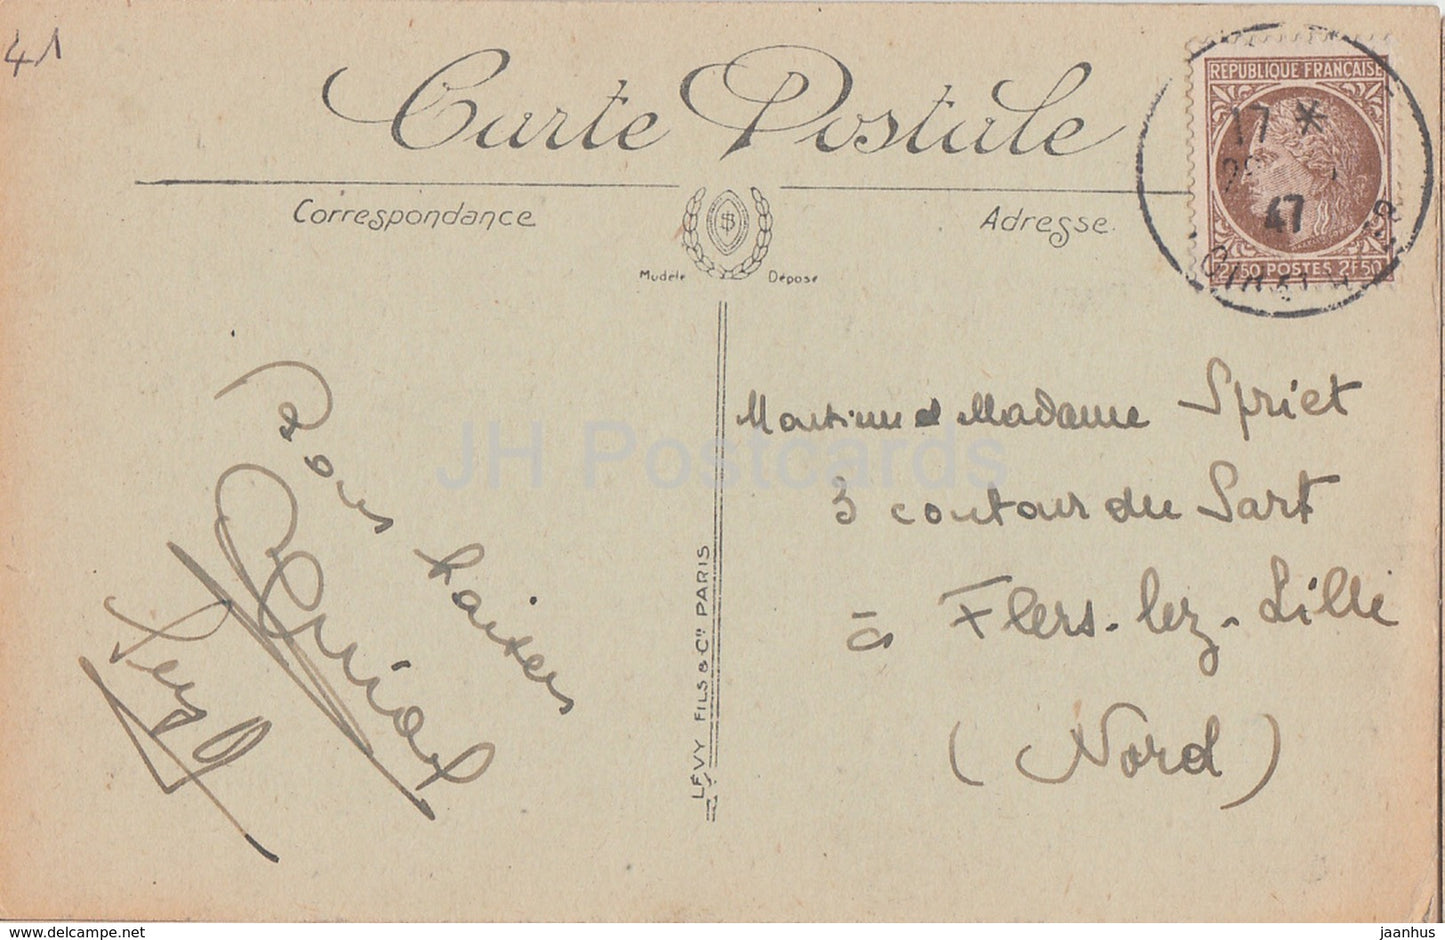 41
Carte Postale
Correspondance
Adresse.
Modèle Déposé
RÉPUBLIQUE FRANÇAISE
2F50 POSTES 2F50
17 *
47
Bons baisers
Monsieur et Madame Spriet
3 contour du Sart
à Flers-lez-Lille
(Nord)
LÉVY FILS & Cie PARIS
JH Postcards
delcampe.net
jaanhus